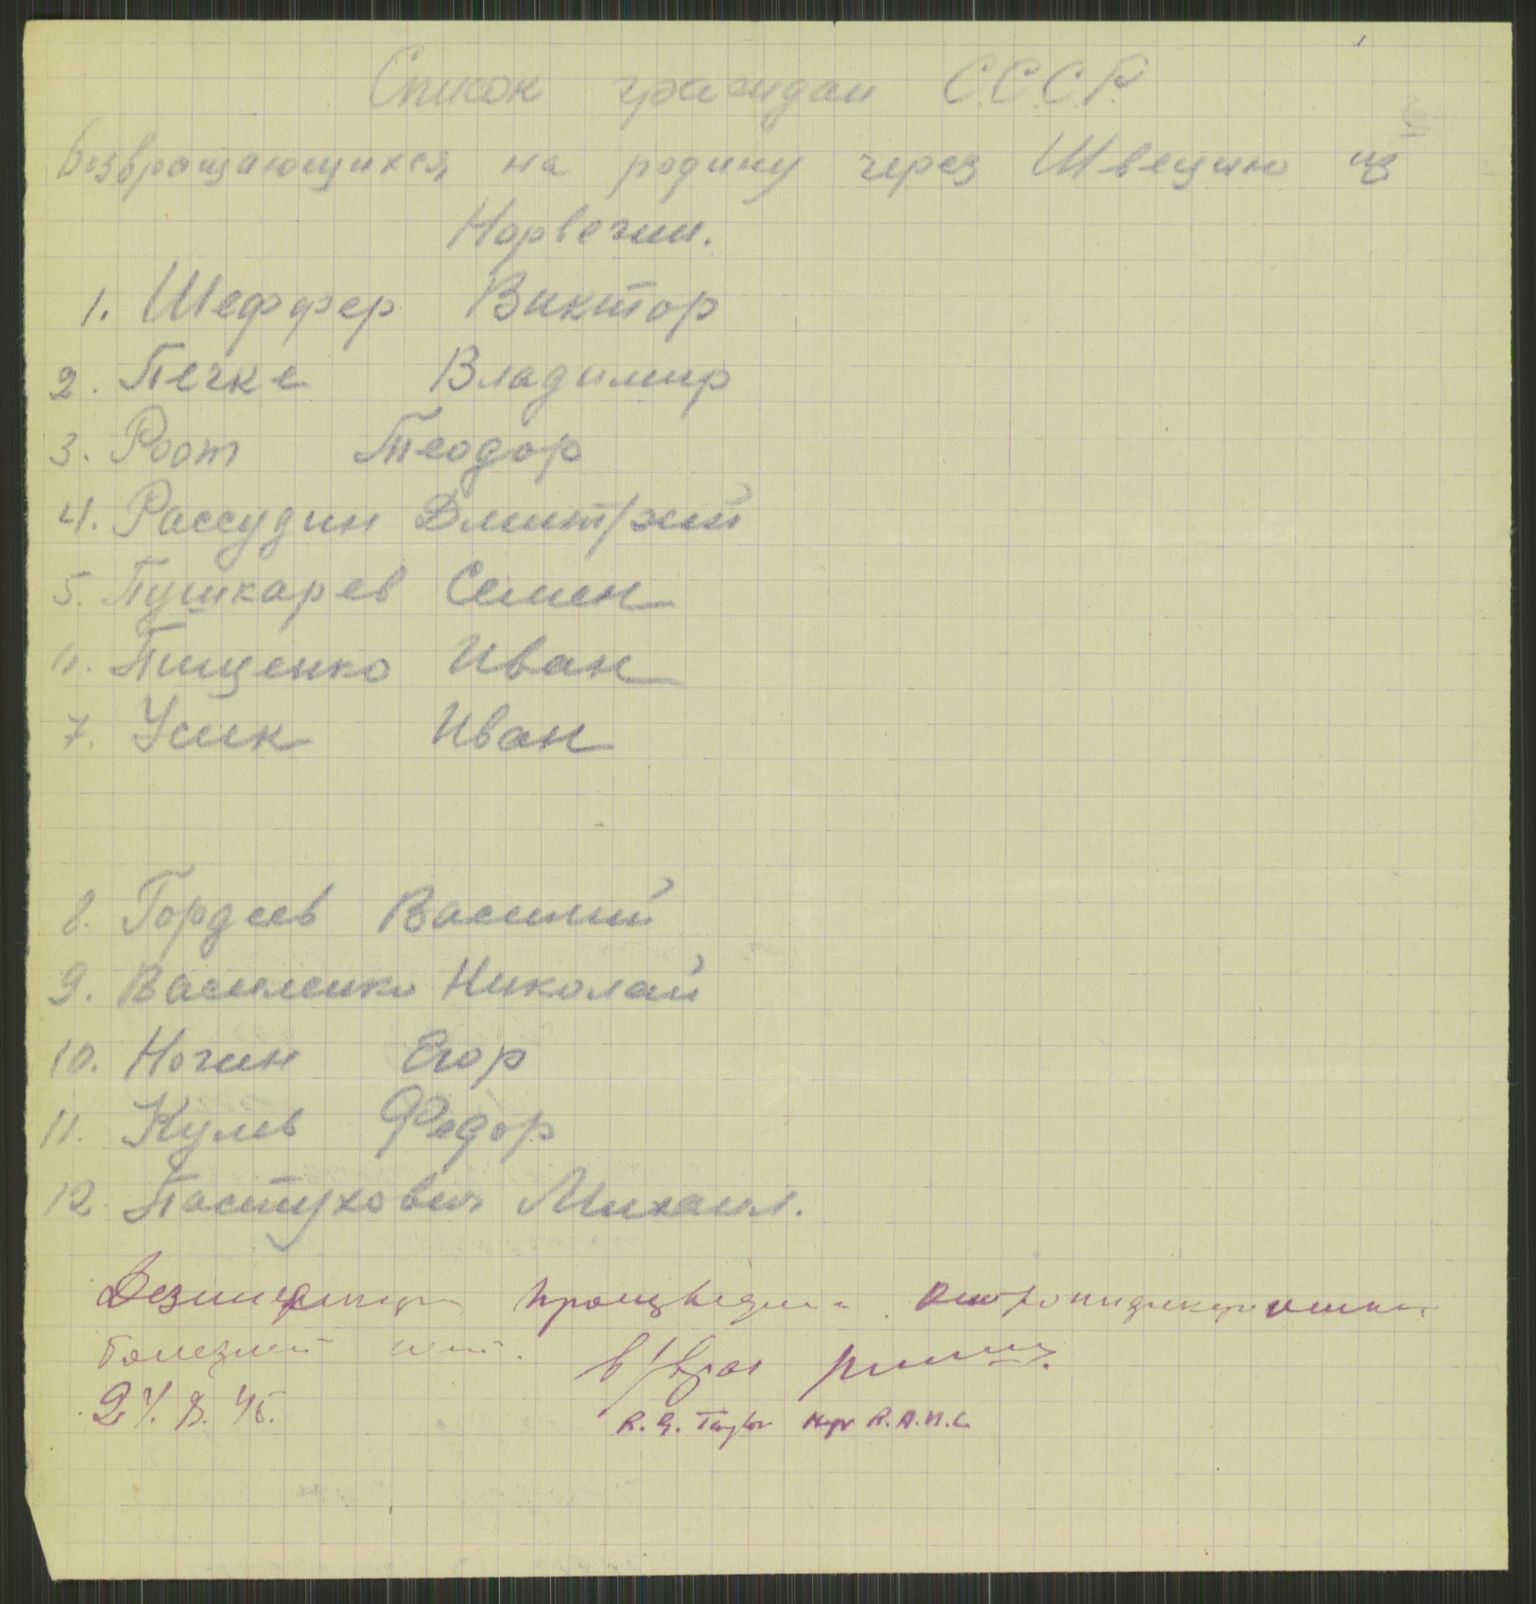 Список граждан С.С.С.Р.
возвращающихся на родину через Швецию из
Норвегии.
1. Шеффер Виктор
2. Печке Владимир
3. Роот Теодор
4. Рассудин Дмитрий
5. Пушкарев Семен
6. Пищенко Иван
7. Усик Иван
8. Гордеев Василий
9. Василенко Николай
10. Ногин Егор
11. Кулев Федор
12. Пастухович Михаил.
Дезинфекция произведена. Остроинфекционных
болезней нет. в/врач
27. 8. 45.
R. G. Taylor Major R.A.M.C.